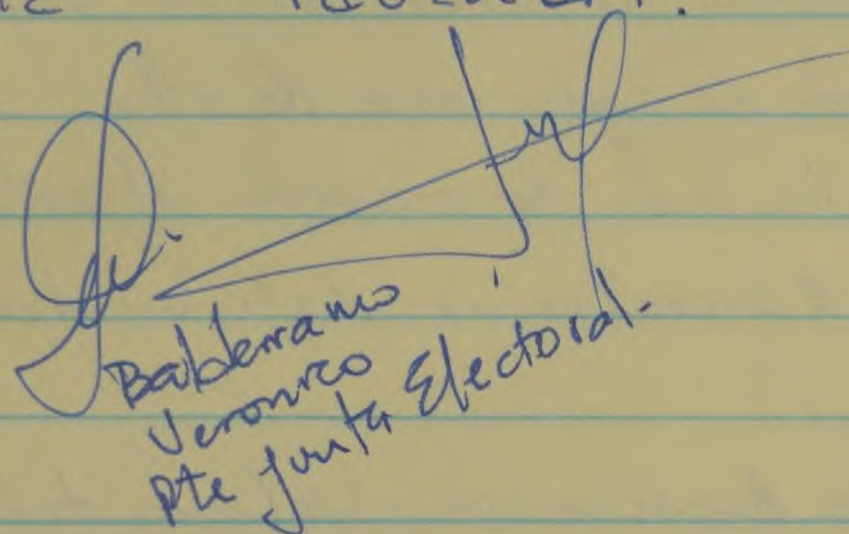 Balderramo
Veronico
Pte Junta Electoral.